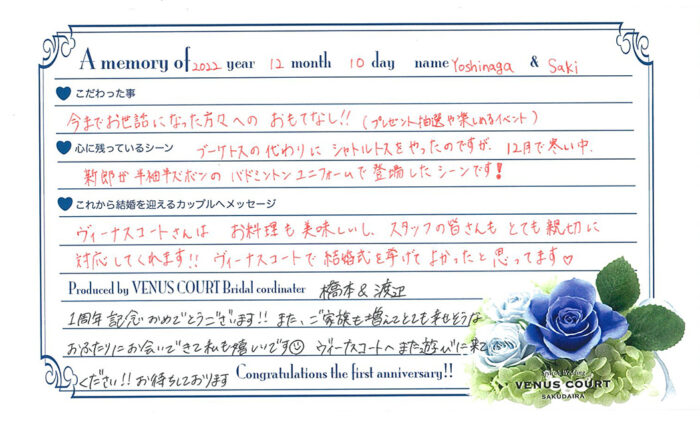 A memory of 2022 year 12 month 10 day name Yoshinaga & Saki
こだわった事
今までお世話になった方々への おもてなし!! (プレゼント抽選や楽しめるイベント)
心に残っているシーン ブーケトスの代わりに シャトルトスをやったのですが、12月で寒い中、
新郎が半袖半ズボンの バドミントンユニフォームで登場したシーンです!
これから結婚を迎えるカップルへメッセージ
ヴィーナスコートさんは お料理も美味しいし、スタッフの皆さんも とても親切に
対応してくれます!! ヴィーナスコートで 結婚式を挙げて よかったと 思ってます♡
Produced by VENUS COURT Bridal cordinater 橋本 & 渡辺
1周年記念おめでとうございます!! また、ご家族も増えてとても幸せそうな
おふたりにお会いできて私も嬉しいです☺ ヴィーナスコートへまた遊びに来て
ください!! お待ちしております Congratulations the first anniversary!!
VENUS COURT
SAKUDAIRA